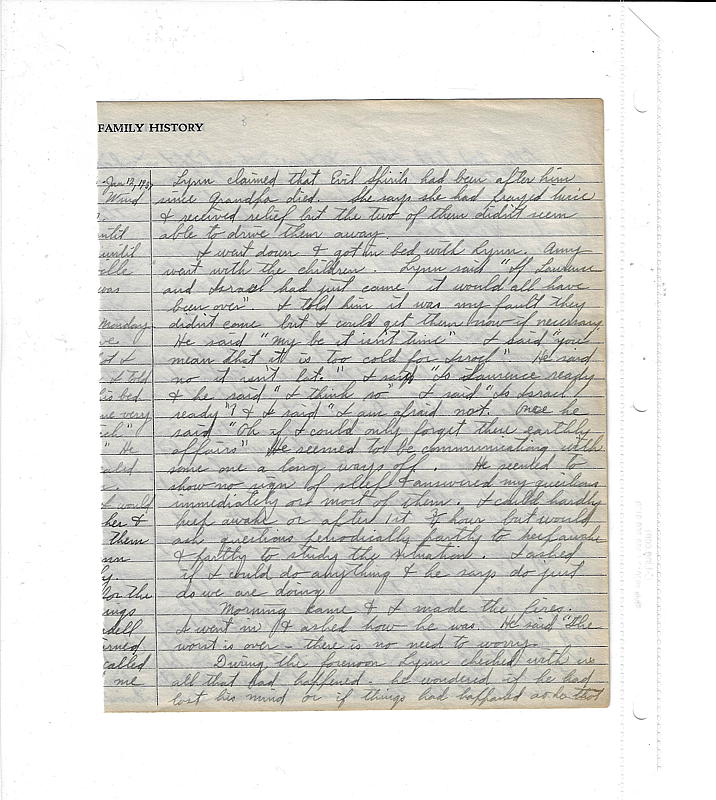 FAMILY HISTORY
8
Jan 12, 19
Lynn claimed that Evil Spirits had been after him
Wind
since Grandpa died. She says she had prayed twice
& received relief but the two of them didn't seem
until
able to drive them away.
until
I went down & got in bed with Lynn. Amy
ille
went with the children. Lynn said "If Laurence
was
and Israel had just came it would all have
been over". I told him it was my fault they
Monday
didn't come but I could get them now if necessary
ve
He said "my be it isn't time" I said "you
ot &
mean that it is too cold for Israel" He said
I told
no it isn't that." I said "Is Laurence ready
is bed
& he said "I think so" I said "Is Israel
me very
ready"? & I said "I am afraid not. Once he
ich"
said "Oh if I could only forget these earthly
" He
affairs" He seemed to be communicating with
aled
some one a long ways off. He seemed to
show no sign of sleep & answered my questions
I would
immediately or most of them. I could hardly
her &
keep awake or after 1st ¾ hour but would
them
ask questions periodically partly to keep awake
nn
& partly to study the situation. I asked
y.
if I could do anything & he says do just
for the
as we are doing
ings
Morning came & I made the fires.
dell
I went in & asked how he was. He said "The
rned
worst is over - there is no need to worry.
called
During the forenoon Lynn checked with us
me
all that had happened. he wondered if he had
lost his mind or if things had happened as he that